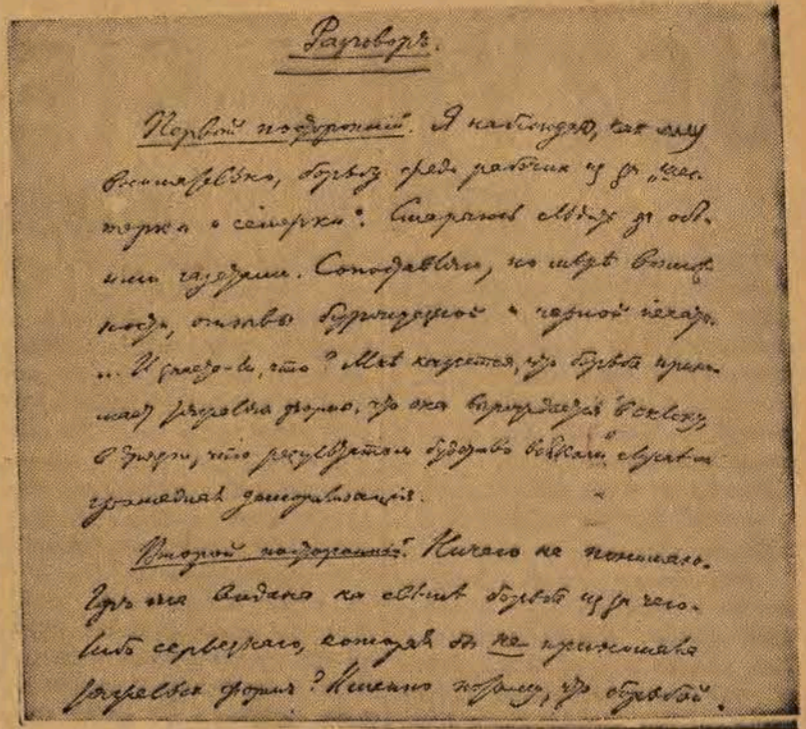 Разговоръ.
Первый посторонній. Я наблюдаю, как могу
внимательно, борьбу среди рабочих из за „шес-
терки и семерки". Стараюсь слѣдить за обѣ-
ими газетами. Сопоставляю, по мѣрѣ возмож-
ности, отзывы буржуазной и черной печати.
... И знаете-ли, что? Мнѣ кажется, что борьба прини-
мает тяжелыя формы, что она вырождается в склоку,
в дрязги, что результатом будет во всяком случаѣ
громадная деморализація.
Второй посторонній. Ничего не понимаю.
Гдѣ же видана на свѣтѣ борьба из за чего-
либо серьезнаго, которая бы не принимала
тяжелых форм? Именно потому, что борьбой